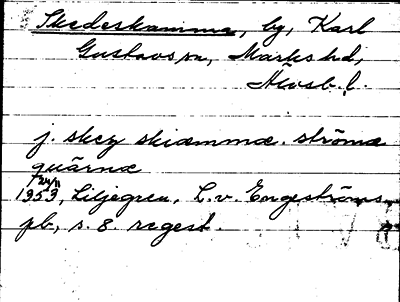 Skedeskamma, by, Karl
Gustavs sn, Marks hd,
Älvsb. l.
j. skez skiæmmæ. strömæ
quärnæ
24/11
1353, Liljegren, L. v. Engeströms
pb, s. 8. regest.